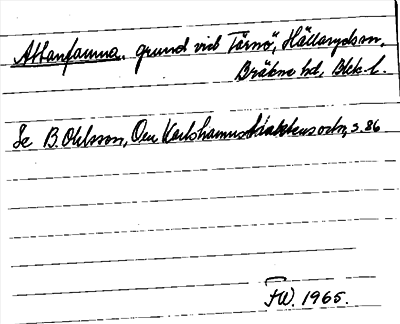 Attanfauna. grund vid Tärnö, Hällaryds sn,
Bräkne hd, Blek. l.
Se B. Ohlsson, Om Karlshamnstraktens ortn, s. 86
FW. 1965.